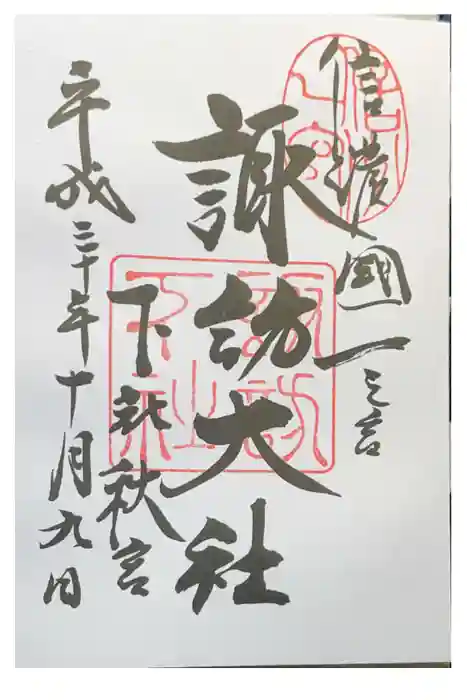 信濃國一之宮
諏訪大社
下社秋宮
平成三十年十月九日